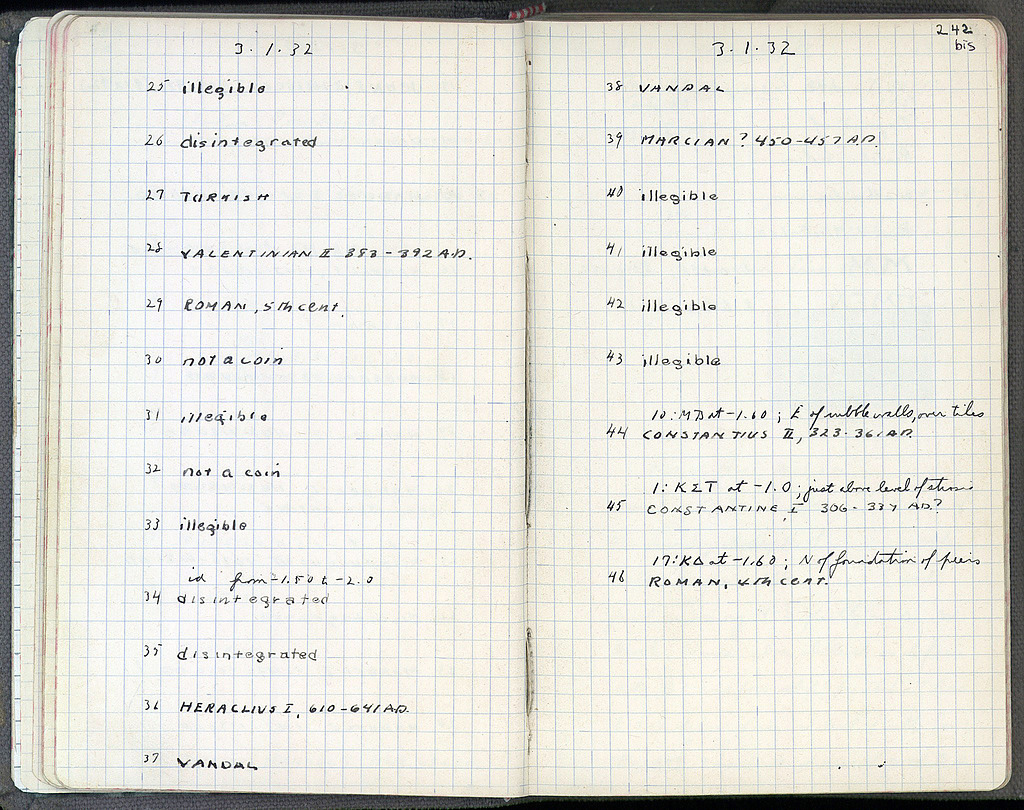 3·1·32
25 illegible
26 disintegrated
27 TURKISH
28 VALENTINIAN II 383-392 A.D.
29 ROMAN, 5th cent.
30 not a coin
31 illegible
32 not a coin
33 illegible
id from -1.50 to -2.0
34 disintegrated
35 disintegrated
36 HERACLIUS I, 610-641 A.D.
37 VANDAL
242
bis
3·1·32
38 VANDAL
39 MARCIAN? 450-457 A.D.
40 illegible
41 illegible
42 illegible
43 illegible
10:MB at -1.60; E of rubble walls, over tiles
44 CONSTANTIUS II, 323-361 A.D.
1:KΣT at -1.0; just above level of
45 CONSTANTINE, I 306-337 A.D.?
17:KΔ at -1.60; N of foundation of piers
46 ROMAN, 4th cent.